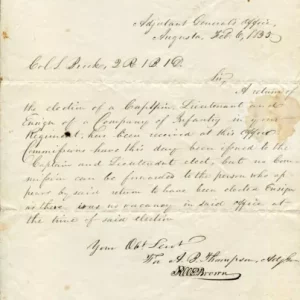 Adjutant Generals Office,
Augusta, Feb. 6, 1835
Col. L Peck, 2. R. 1 B 1 D.
Sir,
A return of
the election of a Captain, Lieutenant and
Ensign of a Company of Infantry in your
Regiment, has been received at this Office
Commissions have this day been issued to the
Captain and Lieutenant elect, but no Com-
mission can be forwarded to the person who ap-
pears by said return to have been elected Ensign
as there was no vacancy in said office at
the time of said election
Your Obt Servt
For A. B. Thompson, Adj Gen
Brown